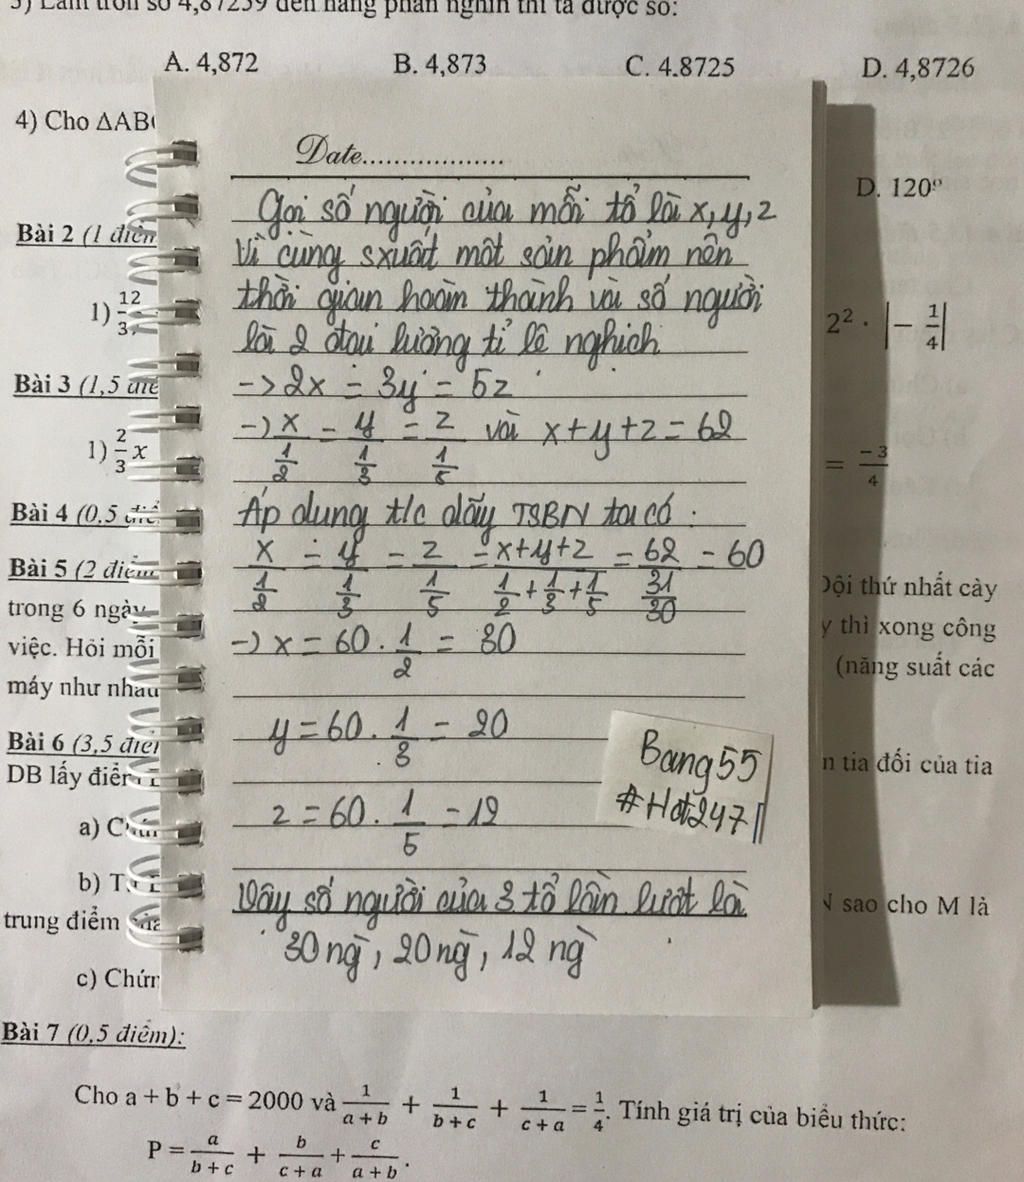 3) Làm tròn số 4,87259 đến hàng phần nghìn thì ta được số:
A. 4,872 B. 4,873 C. 4.8725 D. 4,8726
4) Cho ΔAB
D. 120°
Bài 2 (1 điểm
1) 12/3
2² · |− 1/4|
Bài 3 (1,5
1) 2/3 x
= −3/4
Bài 4 (0,5
Bài 5 (2
Đội thứ nhất cày
trong 6 ngày
y thì xong công
việc. Hỏi mỗi
(năng suất các
máy như nhau
Bài 6 (3,5
n tia đối của tia
DB lấy điểm
a)
b)
N sao cho M là
trung điểm
c) Chứn
Date..................
Gọi số người của mỗi tổ là x, y, z
Vì cùng sxuất một sản phẩm nên
thời gian hoàn thành và số người
là 2 đại lượng tỉ lệ nghịch
-> 2x = 3y = 5z
-> x/(1/2) = y/(1/3) = z/(1/5) và x+y+z = 62
Áp dụng t/c dãy TSBN ta có :
x/(1/2) = y/(1/3) = z/(1/5) = (x+y+z)/(1/2+1/3+1/5) = 62/(31/30) = 60
-> x = 60 . 1/2 = 30
y = 60 . 1/3 = 20
z = 60 . 1/5 = 12
Bang55
#Hdt247
Vậy số người của 3 tổ lần lượt là
30 ng̀, 20 ng̀, 12 ng̀
Bài 7 (0,5 điểm):
Cho a + b + c = 2000 và 1/(a + b) + 1/(b + c) + 1/(c + a) = 1/4. Tính giá trị của biểu thức:
P = a/(b + c) + b/(c + a) + c/(a + b).